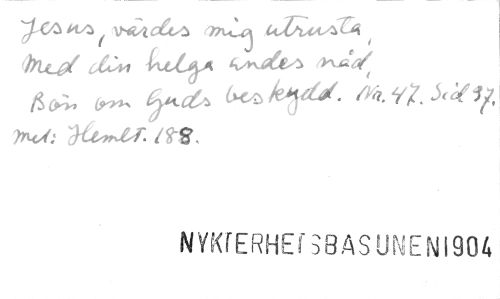 Jesus, värdes mig utrusta,
Med din helga andes nåd,
Bön om Guds beskydd. Nr. 47. Sid 37.
mel: Hemlt. 188.
NYKTERHETSBASUNEN 1904